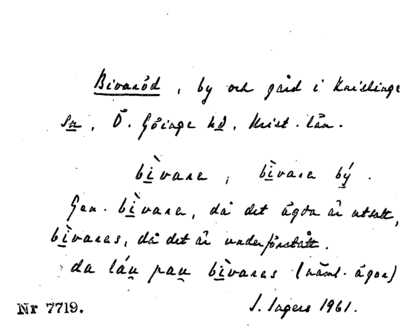 Bivaröd, by och gård i Knislinge
sn, Ö. Göinge hd, Krist. län.
bìvara, bìvara bý.
Gen. bìvara, då det ägda är utsatt,
bìvaras, då det är underförstått.
da láu pau bìvaras (näml. ägor)
Nr 7719. I. Ingers 1961.